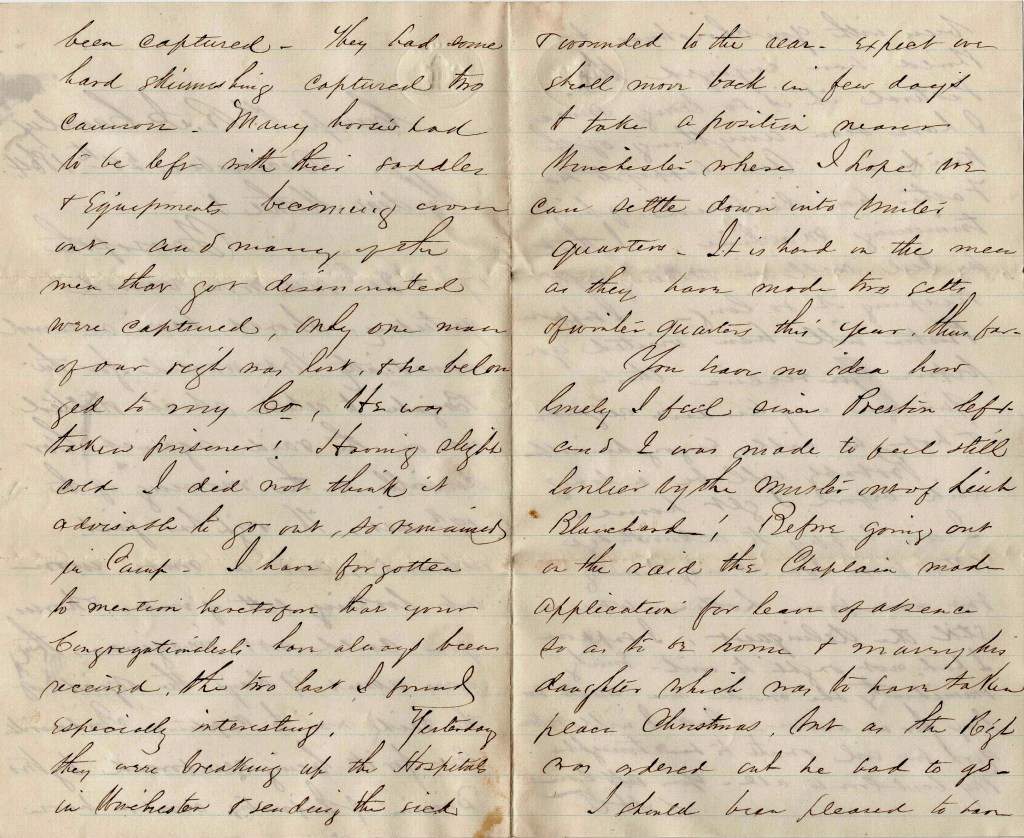 been captured - They had some
hard skirmishing captured two
cannon - Many horses had
to be left with their saddles
& Equipments becoming worn
out, and many of the
men that got dismounted
were captured, only one man
of our regt was lost, & he belon
ged to my Co, He was
taken prisoner! Having slight
cold I did not think it
advisable to go out, so remained
in Camp - I have forgotten
to mention heretofore that your
Congregationalists have always been
received, the two last I found
especially interesting. Yesterday
they were breaking up the Hospitals
in Winchester & sending the sick
& wounded to the rear - expect we
shall move back in few days
& take a position nearer
Winchester where I hope we
can settle down into winter
quarters - It is hard on the men
as they have made two setts
of winter quarters this year, thus far -
You have no idea how
lonely I feel since Preston left -
and I was made to feel still
lonlier by the muster out of Lieut
Blanchard! Before going out
on the raid the Chaplain made
application for leave of absence
so as to go home & marry his
daughter which was to have taken
place Christmas, but as the Regt
was ordered out he had to go -
I should been pleased to have